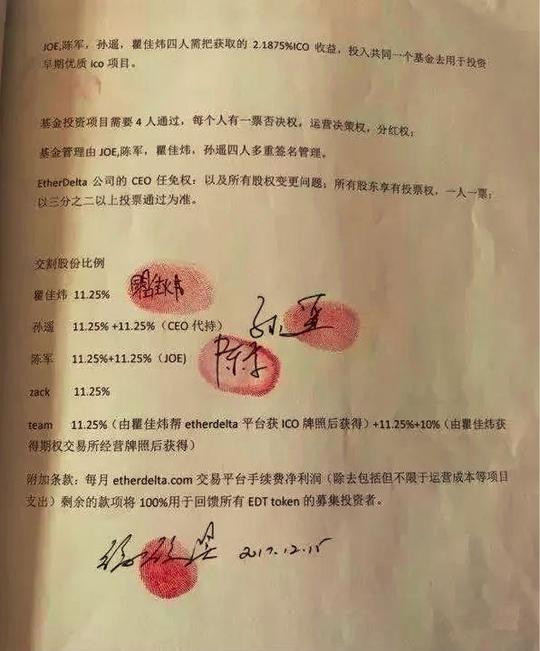 JOE,陈军，孙遥，瞿佳炜四人需把获取的 2.1875%ICO 收益，投入共同一个基金去用于投资
早期优质 ico 项目。
基金投资项目需要 4 人通过，每个人有一票否决权，运营决策权，分红权；
基金管理由 JOE,陈军，瞿佳炜，孙遥四人多重签名管理。
EtherDelta 公司的 CEO 任免权：以及所有股权变更问题；所有股东享有投票权，一人一票；
以三分之二以上投票通过为准。
交割股份比例
瞿佳炜 11.25% 瞿佳炜
孙遥 11.25% +11.25%（CEO 代持） 孙遥
陈军 11.25%+11.25%（JOE) 陈军
zack 11.25%
team 11.25%（由瞿佳炜帮 etherdelta 平台获 ICO 牌照后获得）+11.25%+10%（由瞿佳炜获
得期权交易所经营牌照后获得）
附加条款：每月 etherdelta.com 交易平台手续费净利润（除去包括但不限于运营成本等项目
支出）剩余的款项将 100%用于回馈所有 EDT token 的募集投资者。
2017.12.15